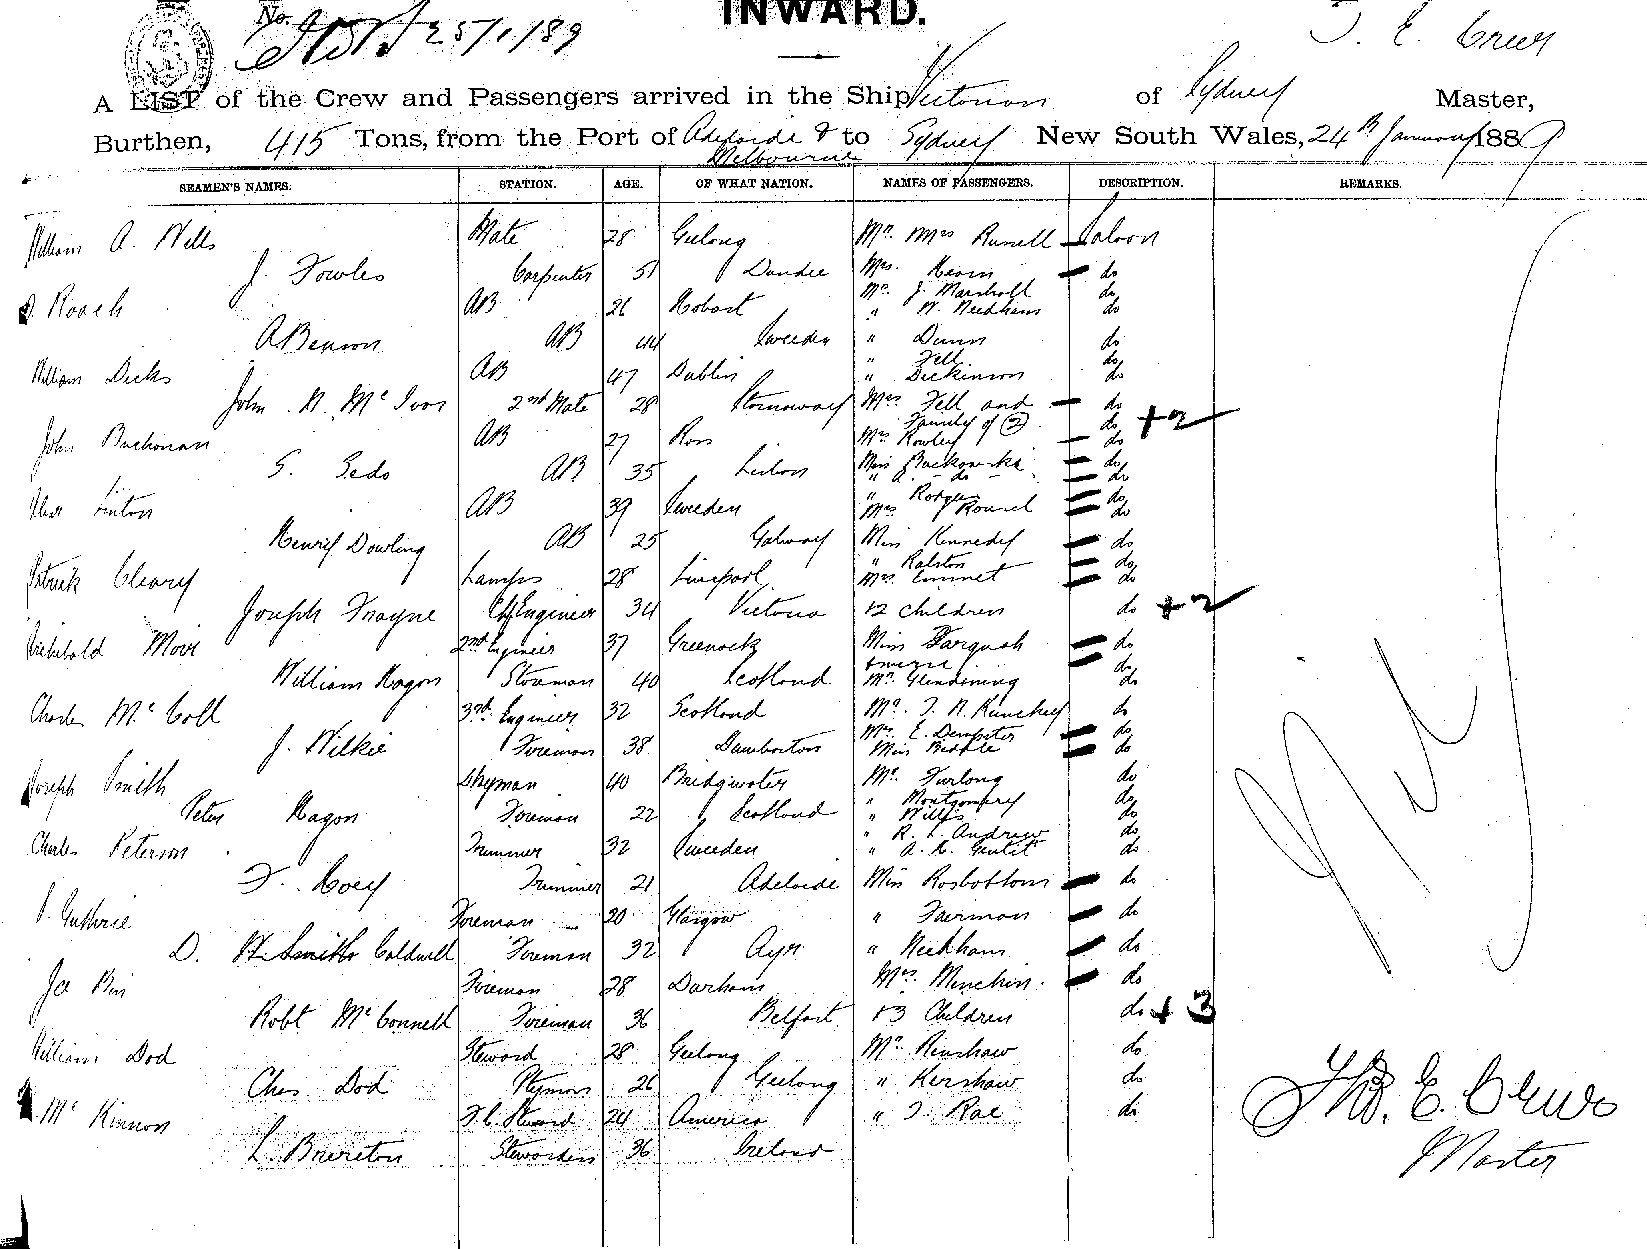 No. 25/1/89
INWARD.
T. E. Crews
A LIST of the Crew and Passengers arrived in the Ship Victorian of Sydney Master,
Burthen, 415 Tons, from the Port of Adelaide & to Sydney New South Wales, 24th January 1889
Melbourne
SEAMEN'S NAMES. STATION. AGE. OF WHAT NATION. NAMES OF PASSENGERS. DESCRIPTION. REMARKS.
William A. Wills Mate 28 Geelong Mr. Mrs Russell Saloon
J. Fowles Carpenter 51 Dundee Mrs. do
Mr. J. Marshall do
Roach AB 26 Hobart " W. Needham do
A Benson AB 44 Sweden " Dunn do
" Fell do
William Dicks AB 47 Dublin " Dickinson do
John N. McIvor 2nd Mate 28 Stornoway Mrs. Fell and do
Family of 2 do + 2
John Buchanan AB 27 Ross Mrs Rowley do
S. Sedo AB 35 Lisbon Miss do
" do do
Linton AB 39 Sweden " Rodger do
Mrs do
Henry Dowling AB 25 Galway Miss Kennedy do
" Ralston do
Patrick Cleary Lamps 28 Liverpool Mrs. Emmet do
Joseph Frayne Ch Engineer 34 Victoria & 2 children do + 2
Archibald Moir 2nd Engineer 37 Greenock Miss Farquah do
do
William Hagon 40 Scotland Mr. Glendining do
Charles McColl 3rd Engineer 32 Scotland Mr. do
Mrs. E. Dempster do
J. Wilkie Fireman 38 Dumbarton Miss do
Joseph Smith 40 Bridgwater Mr. Furlong do
" Montgomery do
Peter Hagon Fireman 22 Scotland " Wills do
" R. L. Andrew do
Charles Peterson Trimmer 32 Sweden " do
F. Hoey Trimmer 21 Adelaide Miss Rosbottom do
Guthrie Fireman 20 Glasgow " Fairman do
D. Caldwell Fireman 32 Ayr " Needham do
Fireman 28 Durham Mrs. Minchin do
Robt McConnell Fireman 36 Belfast & 3 Children do + 3
William Dod Steward 28 Geelong Mr. Renshaw do
Chas Dod 26 Geelong " Kershaw do
McKinnon F. C. Steward 24 America " J. Rae do
L. Brereton Stewardess 36 Ireland
Nil
Thos. E. Crews
Master